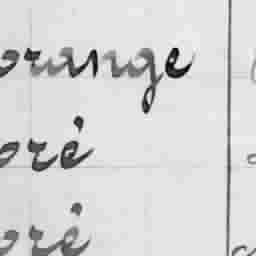 orange
oré
oré